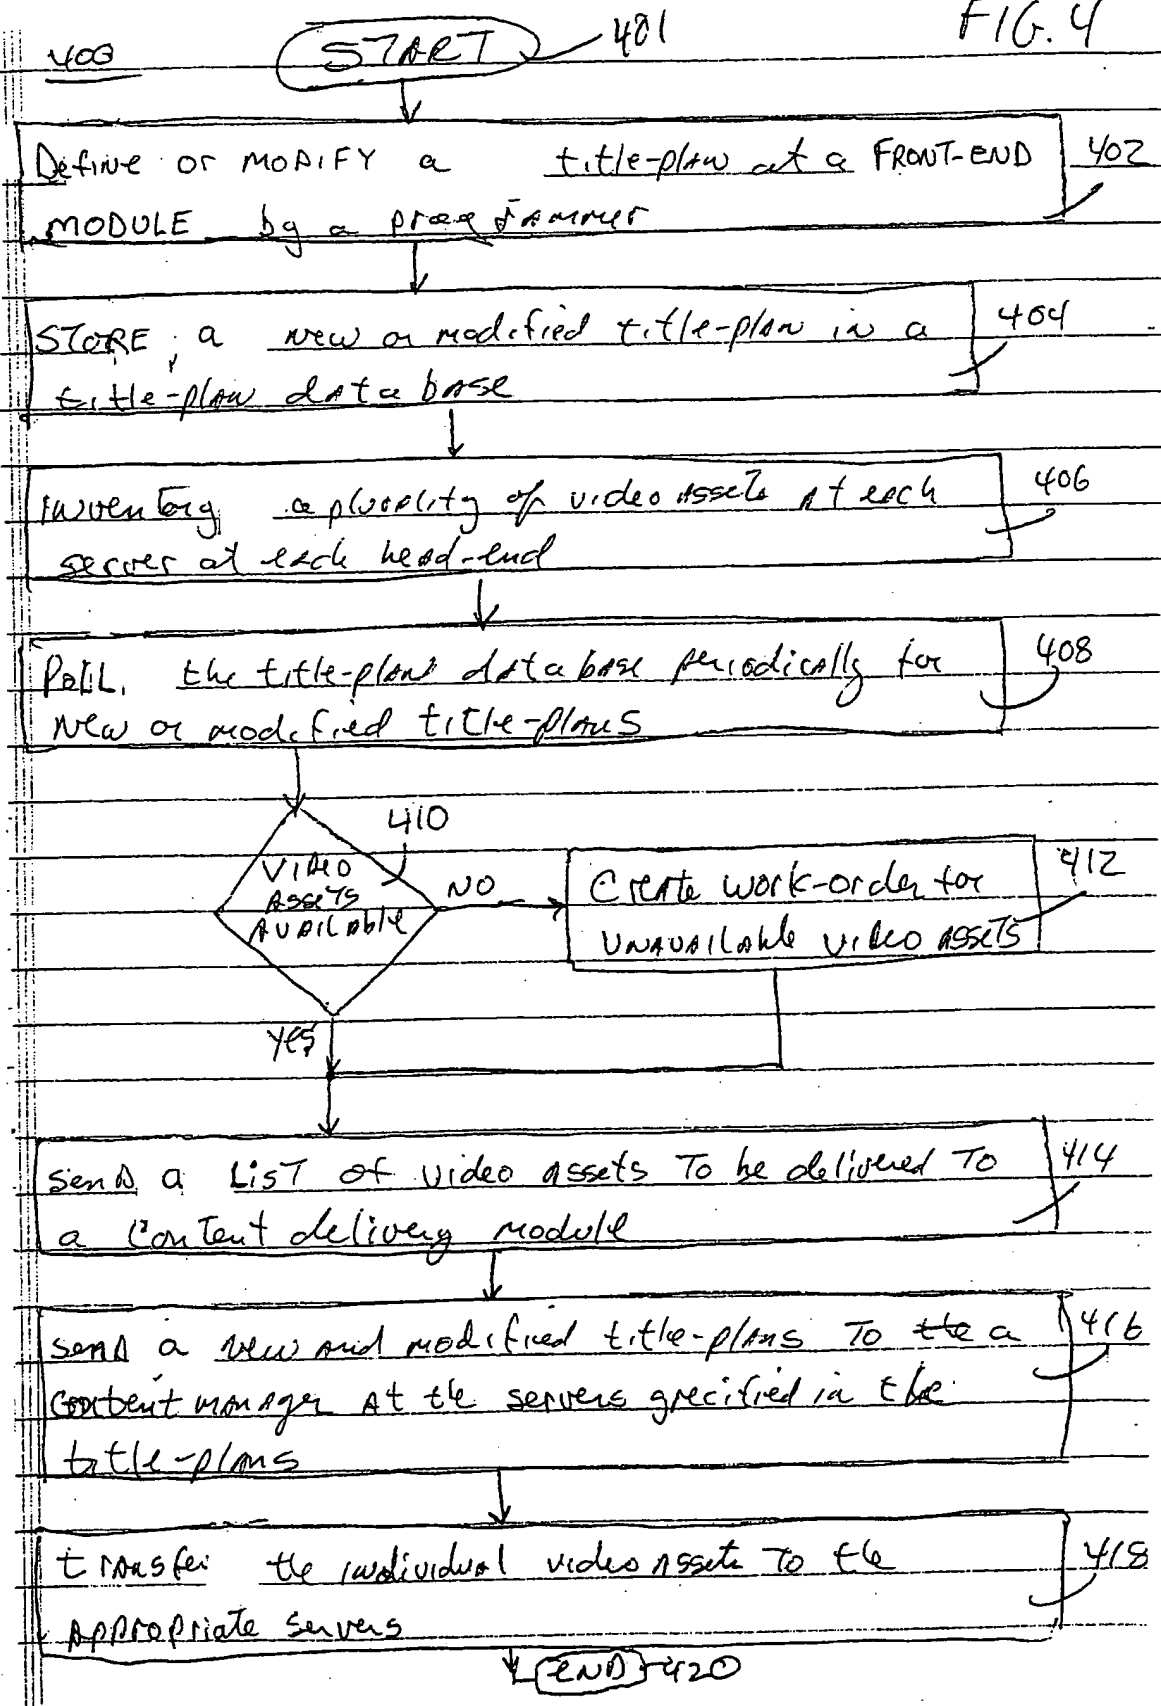 FIG. 4
400
START
401
Define or MODIFY a title-plan at a FRONT-END
402
MODULE by a programmer
STORE a new or modified title-plan in a
404
title-plan database
Inventory a plurality of video assets at each
406
server at each head-end
Poll the title-plans database periodically for
408
New or modified title-plans
410
VIDEO
ASSETS
AVAILABLE
NO
Create work-order for
412
UNAVAILABLE VIDEO ASSETS
YES
send a LIST of video assets To be delivered To
414
a Content delivery module
send a new and modified title-plans To the a
416
content manager at the servers specified in the
title-plans
transfer the individual video assets to the
418
Appropriate servers
END
420